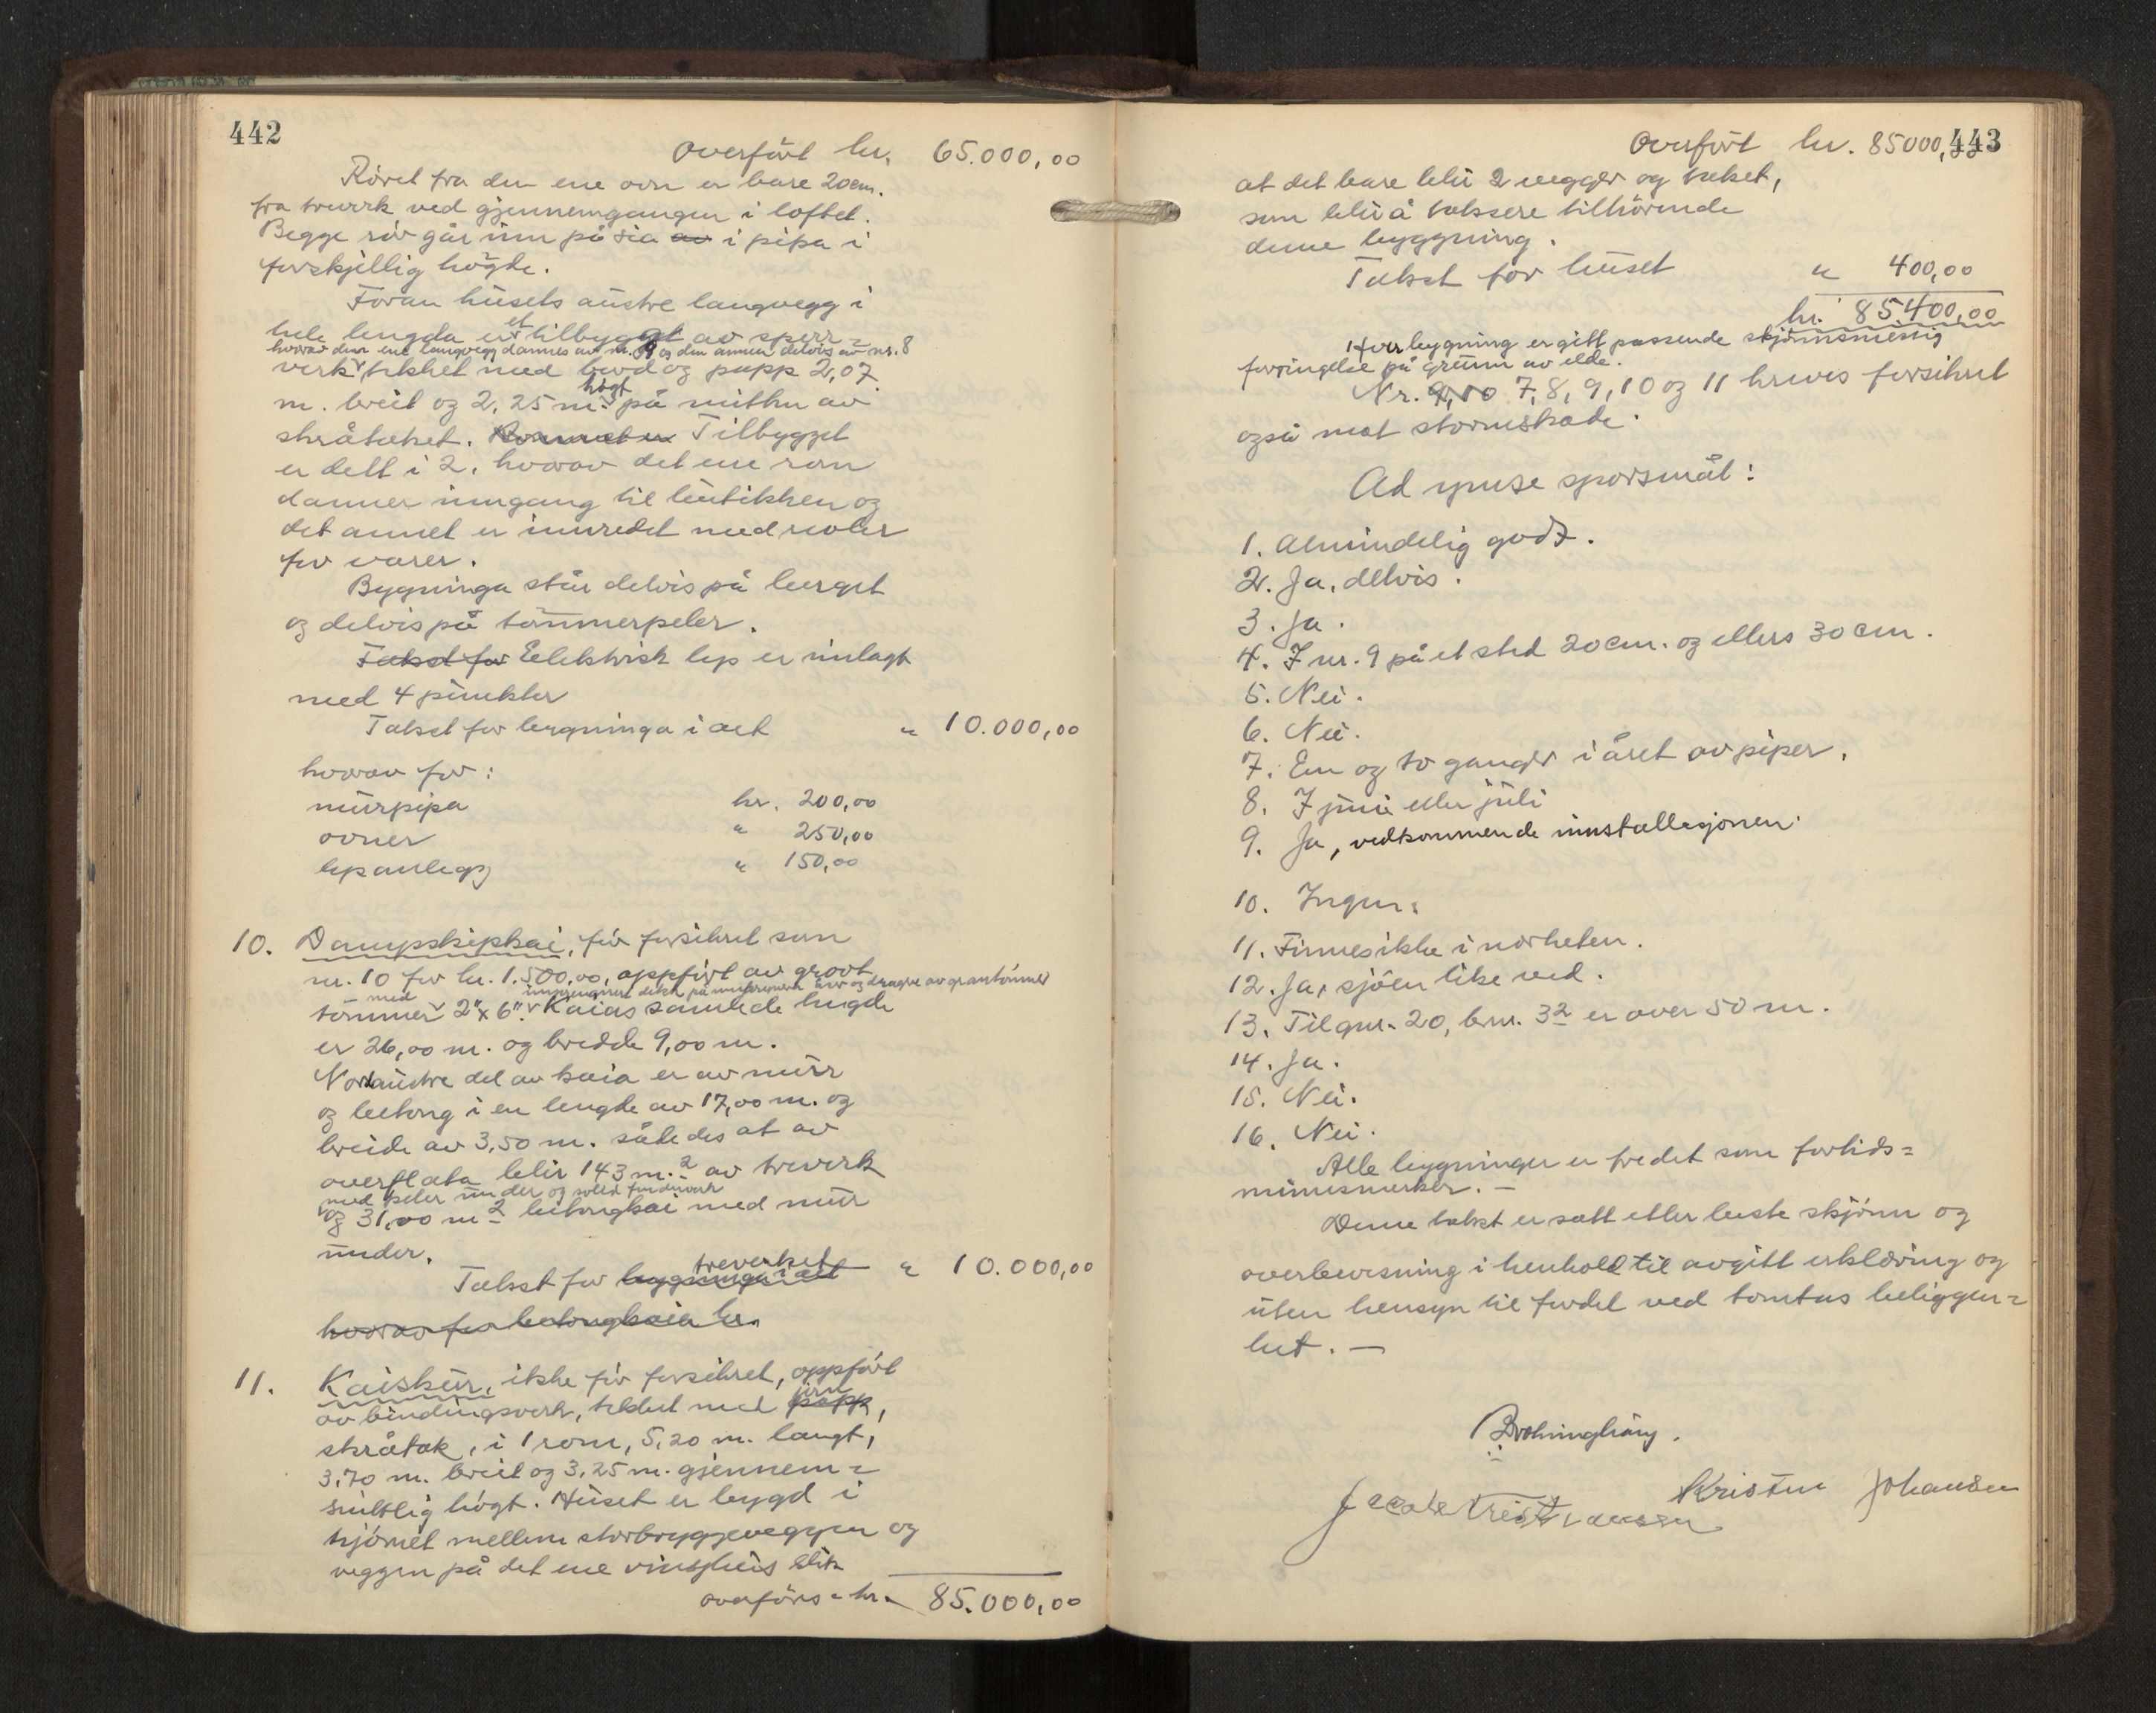 442
Overført kr. 65.000,00
Røret fra den ene ovn er bare 20cm.
fra treverk ved gjennemgangen i loftet.
Begge rør går inn på sia av i pipa i
forskjellig høgde.
Foran husets austre langvegg i
hele lengda er et tilbygg av sperr=
hvorav den ene langvegg dannes av nr. 9 og den annen delvis av nr. 8
verk tekket med bord og papp 2,07
m. breit og 2,25 m. høgt på mitten av
skråtaket. Rommet er Tilbygget
er delt i 2, hvorav det ene rom
danner inngang til butikken og
det annet er innredet med reoler
for varer.
Bygninga står delvis på berget
og delvis på tømmerpeler.
Takst for Elektrisk lys er innlagt
med 4 punkter
Takst for bygninga i alt " 10.000,00
hvorav for:
murpipa kr. 200,00
ovner " 250,00
lysanlegg " 150,00
10. Dampskipskai, før forsikret som
nr. 10 for kr. 1.500,00, oppført av grovt
impregnert dekk på underverk av og dragre av grantømmer
tømmer med 2"x6". Kaias samlede lengde
er 26,00 m. og bredde 9,00 m.
Nordaustre del av kaia er av mur
og betong i en lengde av 17,00 m. og
breide av 3,50 m. således at av
overflata blir 143 m.² av treverk
med peler under og solid
og 31,00 m² betongkai med mur
under.
Takst for bygninga i alt treverket " 10.000,00
hvorav for betongkaia kr.
11. Kaiskur, ikke før forsikret, oppført
av bindingsverk, tekket med papp jern,
skråtak, i 1 rom, 5,20 m. langt,
3,70 m. breit og 3,25 m. gjennem=
snittlig høgt. Huset er bygd i
hjørnet mellem storbryggeveggen og
veggen på det ene vinsjhus slik
overføres = kr. 85.000,00
443
Overført kr. 85000,00
at det bare blir 2 vegger og taket,
som blir å taksere tilhørende
denne byggning.
Takst for huset " 400,00
kr. 85.400,00
Hver bygning er gitt passende skjønnsmessig
forringelse på grunn av elde.
Nr. 9,10 7, 8, 9, 10 og 11 kreves forsikret
også mot stormskade.
Ad ymse spørsmål:
1. Almindelig godt.
2. Ja, delvis.
3. Ja.
4. I nr. 9 på et sted 20cm. og ellers 30cm.
5. Nei.
6. Nei.
7. En og to ganger i året av piper.
8. I juni eller juli
9. Ja, vedkommende innstallasjonen.
10. Ingen.
11. Finnes ikke i nærheten.
12. Ja, sjøen like ved.
13. Til gnr. 20, bnr. 32 er over 50 m.
14. Ja.
15. Nei.
16. Nei.
Alle bygninger er fredet som fortids=
minnesmerker. —
Denne takst er satt etter beste skjønn og
overbevisning i henhold til avgitt erklæring og
uten hensyn til fordel ved tomtas beliggen=
het. —
Kristen Johansen